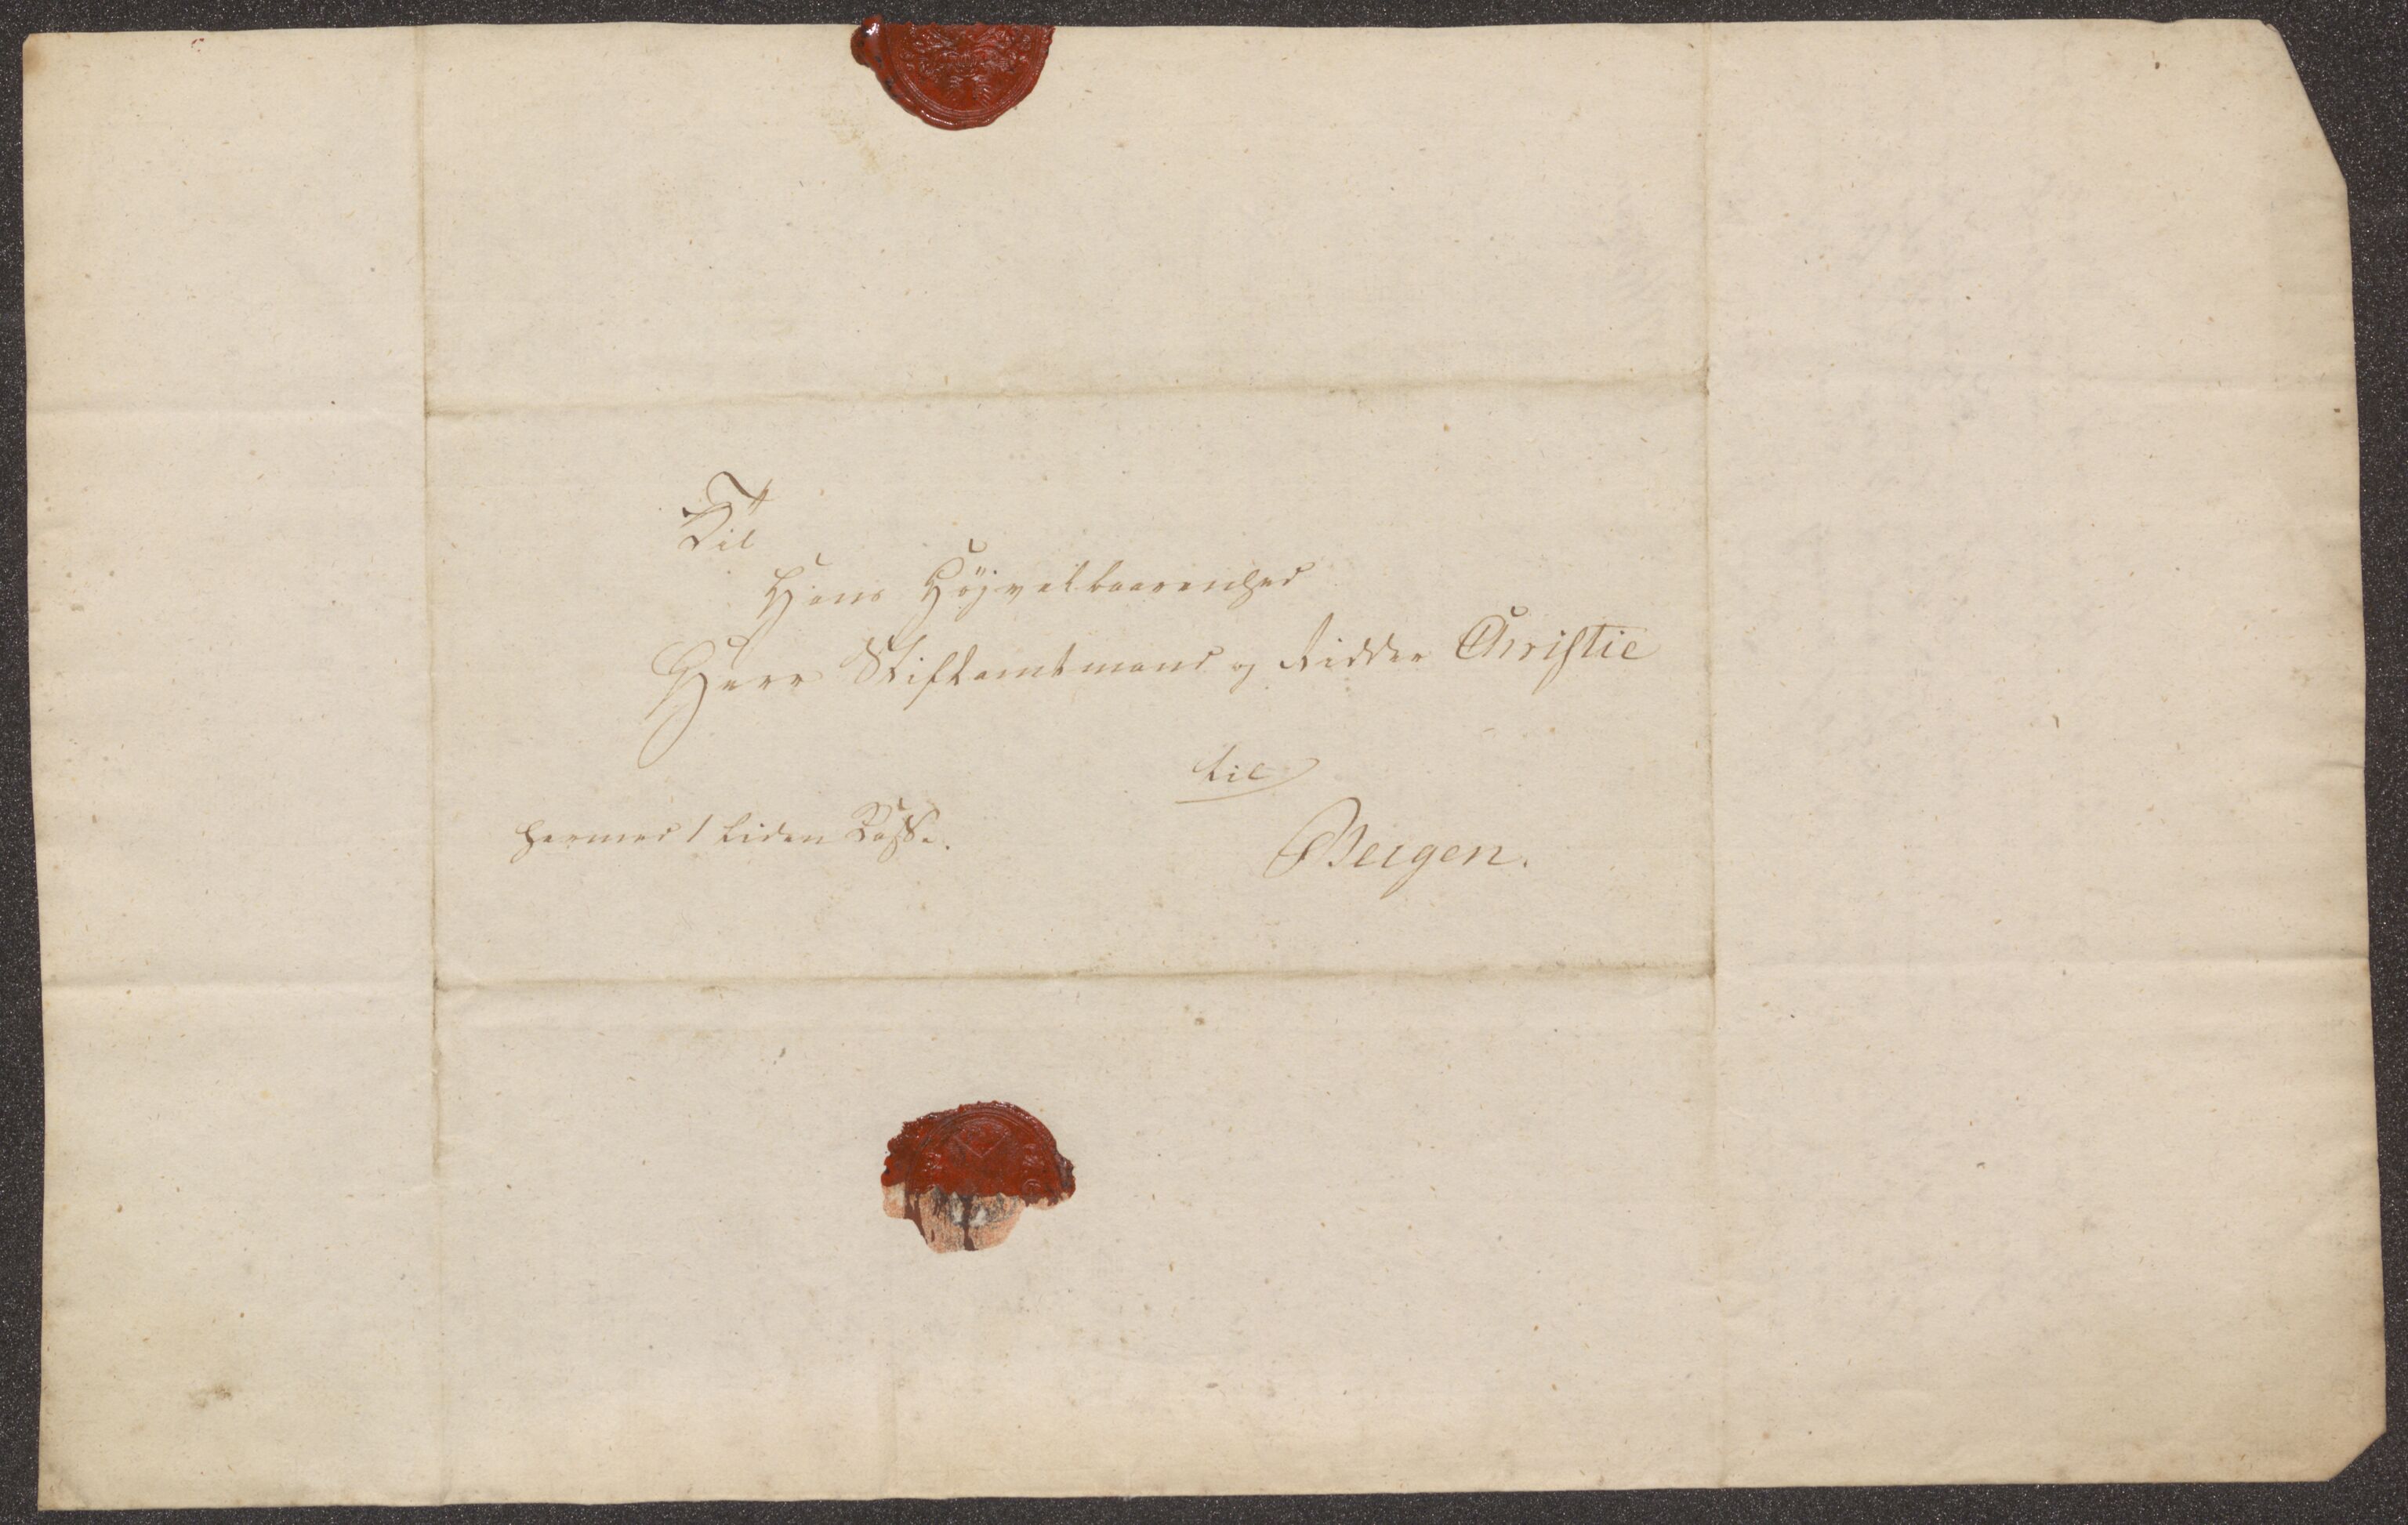 Til
Hans Høÿvelbaarenhed
Herr Stiftamtmand og Ridder Christie
til
Bergen.
hermed 1 liden Kasse.